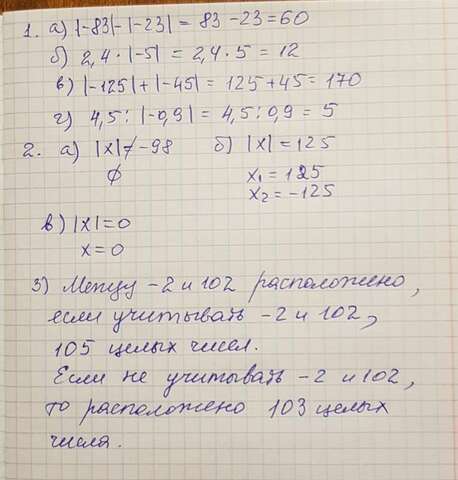 1. а) |-83|-|-23| = 83 -23 = 60
б) 2,4 · |-5| = 2,4 · 5 = 12
в) |-125|+|-45| = 125 +45 = 170
г) 4,5 : |-0,9| = 4,5 : 0,9 = 5
2. а) |x| ≠ -98 б) |x| = 125
∅ x₁ = 125
x₂ = -125
в) |x| = 0
x = 0
3) Между -2 и 102 расположено,
если учитывать -2 и 102,
105 целых чисел.
Если не учитывать -2 и 102,
то расположено 103 целых
числа.